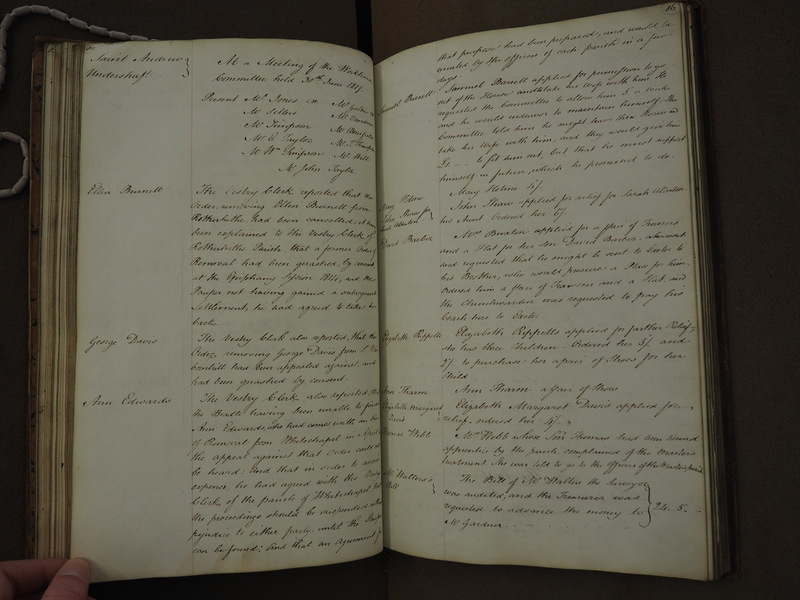 Saint Andrew
Undershaft
At a Meeting of the Workhouse
Committee held 30th June 1817.
Present Mr Jones in
Mr Gardner
Mr Sellers
Mr Simpson
Mr C Taylor
Mr Wm Simpson Mr Witt
Mr John Taylor
Ellen Burnett
The Vestry Clerk reported that the
Order, removing Ellen Burnett from
Rotherhithe had been cancelled, it having
been explained to the Vestry Clerk of
Rotherhithe Parish that a former Order of
Removal had been quashed, by consent
at the Epiphany Session 1814, and the
Pauper not having gained a subsequent
Settlement, he had agreed to take her
back.
George Davis
The Vestry Clerk also reported, that the
Order, removing George Davis from St
Cornhill had been appealed against, and
had been quashed by consent
Ann Edwards
The Vestry Clerk also reported that
the Beadle having been unable to find
Ann Edwards, who had come with an Order
of Removal from Whitechapel in April
the appeal against that Order could not
be heard: and that in order to avoid
expence, he had agreed with the Vestry
Clerk of the parish of Whitechapel that
the proceedings should be suspended without
prejudice to either party, until the Pauper
can be found; and that an agreement for
86
that purpose had been prepared, and would be
executed by the officers of each parish in a few
days
Samuel Burnell
Samuel Burnell applied for permission to go
out of the House and take his Wife with him. He
requested the Committee to allow him 5/ a week
and he would endeavor to maintain himself. The
Committee told him he might leave the House and
take his Wife with him, and they would give him
£1 — to fit him out, but that he must support
himself in future, which he promised to do.
Mary Holme
Mary Holme 4/.
John Shaw for
Sarah
John Shaw applied for relief for Sarah
his Aunt Ordered her 6/.
David Burton
Mrs Burton applied for a pair of Trowsers
and a Hat for her Son David Burton
and requested that he might be sent to Exeter to
his Brother, who would procure a Place for him.
Ordered him a pair of Trowsers and a Hat, and
the Churchwarden was requested to pay his
Coach hire to Exeter
Elizabeth Rippetts
Elizabeth Rippetts applied for further Relief;
she has three Children. Ordered her 5/ and
2/. to purchase her a pair of Shoes for her
Child
Ann Tharm
Ann Tharm a pair of Shoes
Elizabeth Margaret
Davis
Elizabeth Margaret Davis applied for
relief, ordered her 4/.
Thomas Webb
Mrs Webb whose Son Thomas had been bound
apprentice by the parish, complained of the Master's
treatment. She was told to go to the officers of the Master's Parish
Mr Walters's
Bill
The Bill of Mr Walters the Surveyor
was audited, and the Treasurer was
requested to advance the money to
Mr Gardner
24. 5. –